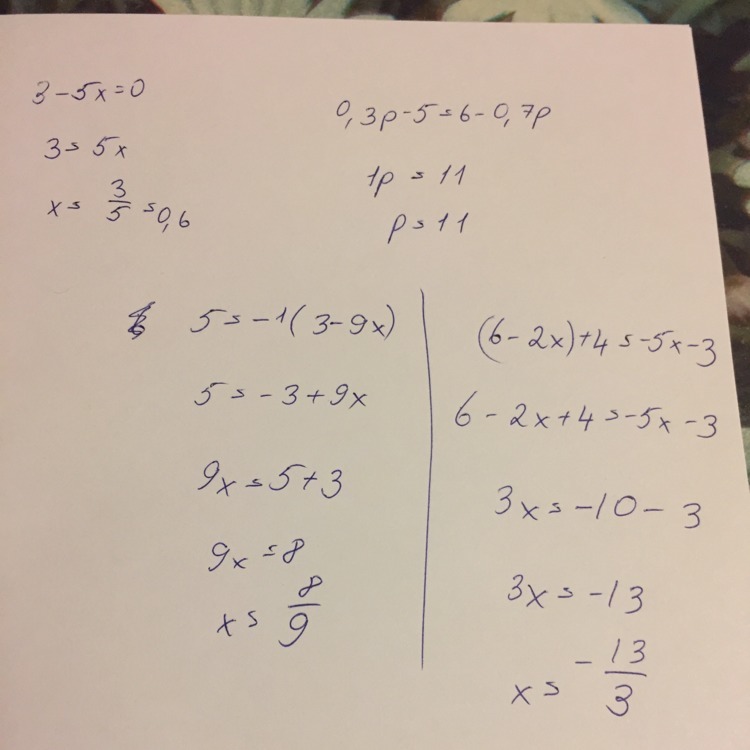 3-5x=0
3=5x
x=3/5=0,6
0,3p-5=6-0,7p
1p=11
p=11
5=-1(3-9x)
5=-3+9x
9x=5+3
9x=8
x=8/9
(6-2x)+4=-5x-3
6-2x+4=-5x-3
3x=-10-3
3x=-13
x=-13/3